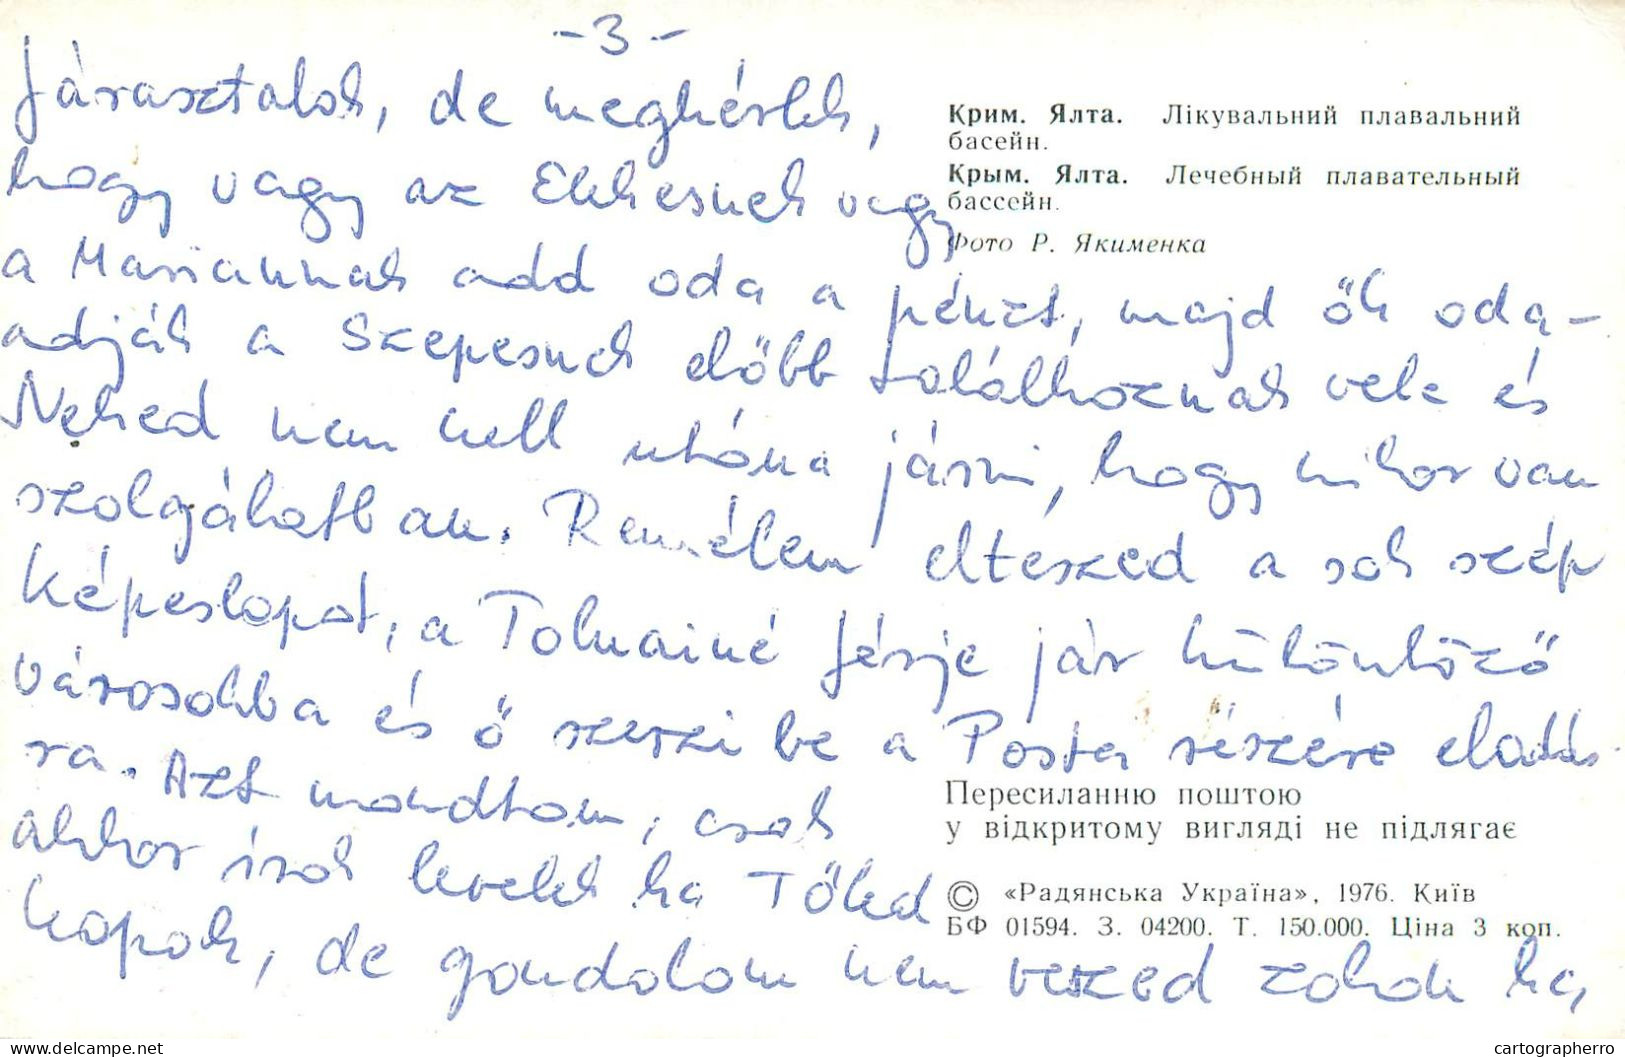 -3-
fárasztalak, de megkérlek,
hogy vagy az Ekkesnek vagy
a Mariannak add oda a pénzt, majd ők oda-
adják a Szepesnek előbb találkoznak vele és
Neked nem kell utána járni, hogy mikor van
szolgálatban. Remélem elteszed a sok szép
képeslapot, a Tolnainé férje jár különböző
városokba és ő szerzi be a Posta részére eladás-
ra. Azt mondtam, csak
akkor írok levelet ha Tőled
kapok, de gondolom nem veszed zokon ha,
Крим. Ялта. Лікувальний плавальний
басейн.
Крым. Ялта. Лечебный плавательный
бассейн.
Фото Р. Якименка
Пересиланню поштою
у відкритому вигляді не підлягає
© «Радянська Україна», 1976. Київ
БФ 01594. З. 04200. Т. 150.000. Ціна 3 коп.
www.delcampe.net
cartographerro